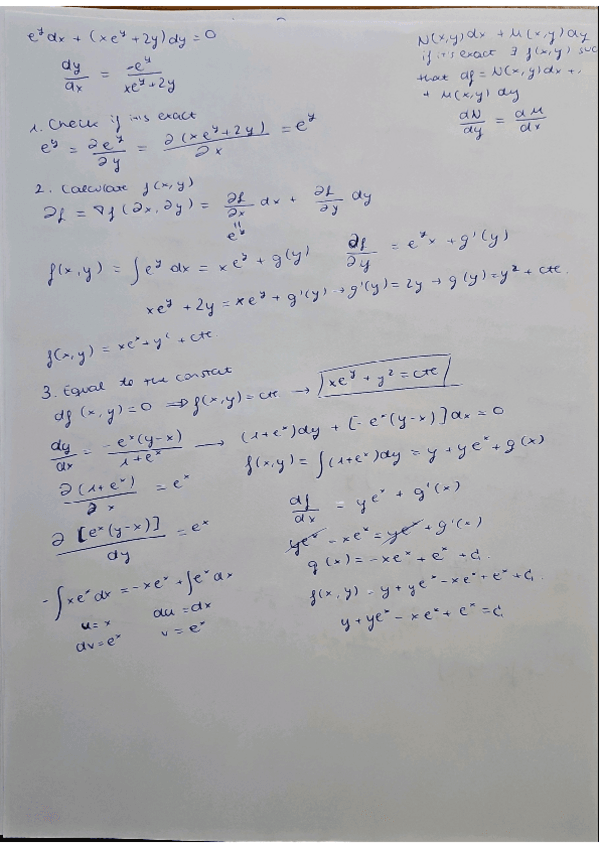 e^y dx + (xe^y + 2y) dy = 0
dy/dx = -e^y / (xe^y + 2y)
N(x,y) dx + M(x,y) dy
if it's exact ∃ f(x,y) suc
that df = N(x,y) dx +
+ M(x,y) dy
dN/dy = dM/dx
1. Check if it's exact
e^y = ∂e^y/∂y = ∂(xe^y + 2y)/∂x = e^y
2. Calculate f(x,y)
∂f = ∇f(∂x, ∂y) = ∂f/∂x dx + ∂f/∂y dy
||
e^y
f(x,y) = ∫ e^y dx = xe^y + g(y)
∂f/∂y = e^y x + g'(y)
xe^y + 2y = xe^y + g'(y) → g'(y) = 2y → g(y) = y² + cte.
f(x,y) = xe^y + y² + cte.
3. Equal to the constant
df(x,y) = 0 ⇒ f(x,y) = cte. → xe^y + y² = cte
dy/dx = -e^x(y-x) / (1+e^x) → (1+e^x) dy + [-e^x(y-x)] dx = 0
∂(1+e^x)/∂x = e^x
f(x,y) = ∫(1+e^x) dy = y + ye^x + g(x)
∂[e^x(y-x)]/dy = e^x
df/dx = ye^x + g'(x)
ye^x - xe^x = ye^x + g'(x)
g(x) = -xe^x + e^x + C₁
-∫xe^x dx = -xe^x + ∫e^x dx
u = x du = dx
dv = e^x v = e^x
f(x,y) = y + ye^x - xe^x + e^x + C₁.
y + ye^x - xe^x + e^x = C₁